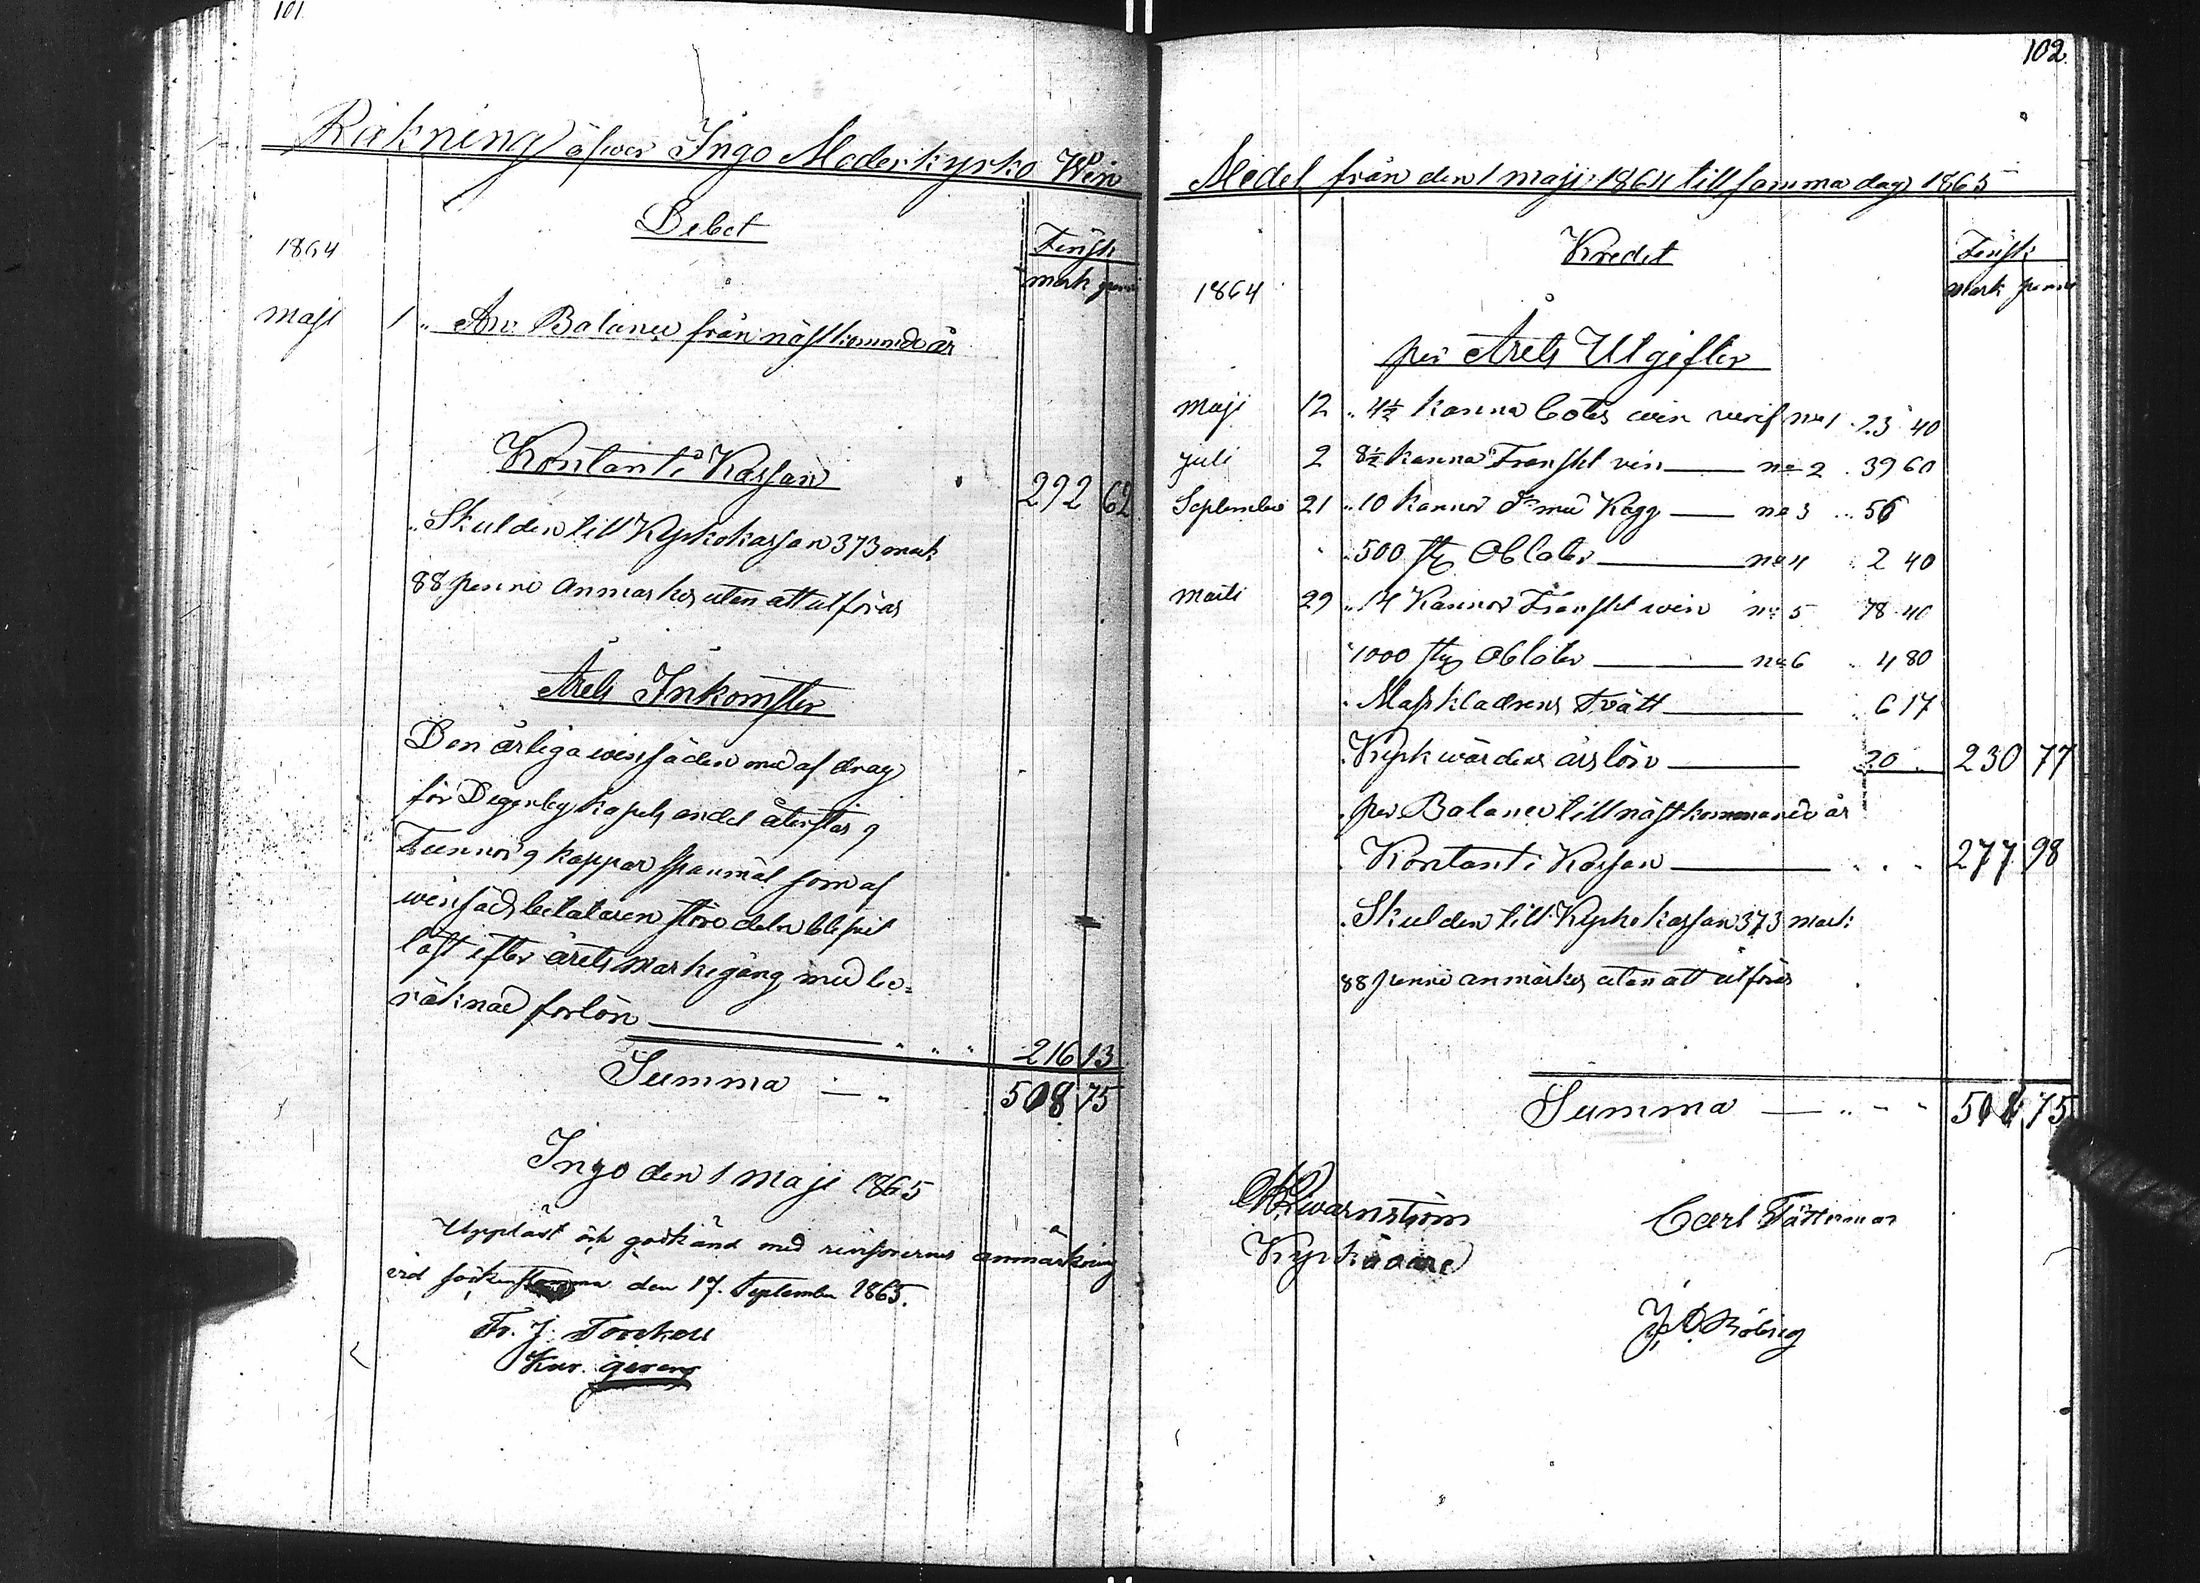 101
Räkning öfver Ingo Moderkyrko Win
Debet
Finsk
mark penni
1864
maji 1 " An: Balance från nästkommande år
Kontant i Kassan " 292 62
" Skulden till Kyrkokassan 373 mark
88 penni anmärkes utan att utföras
Årets Inkomster
Den årliga winsäden med afdrag
för Degerby kapels andel återstår 9
Tunnor 9 kappar spanmål som af
winsäds betalaren större delen blifvit
löst efter årets Markegång med be=
räknad forlön — " " " 216 13
Summa — " 508 75
Ingo den 1 Maji 1865
Uppläst och godkänd med revisorernes anmärkning
vid sockenstämma den 17. September 1865.
Fr. J. Forskell
Knr. gerens
102
Medel från den 1 maji 1864 till samma dag 1865
Kredit
Finsk
mark penni
1864
per Årets Utgifter
Maji 12 " 4½ kanna Cotes win verif no 1 . 23 40
Juli 2 8½ kanna Franskt vin — no 2 . 39 60
September 21 " 10 kannor do med Kagg — no 3 .. 56
" 500 st Oblater — no 4 . 2 40
Marti 29 " 14 Kannor Franskt win no 5 78 40
" 1000 st Oblater — no 6 . 4 80
" Masskladrens Tvätt — . 6 17
" Kyrkwärdens årslön — 20 . 230 77
" per Balance till nästkommande år
" Kontant i Kassan — . . . 277 98
" Skulden till Kyrkokassan 373 mark
88 penni anmärkes utan att utföras
Summa — " - - 508 75
Qwarnström
Carl Fätterman